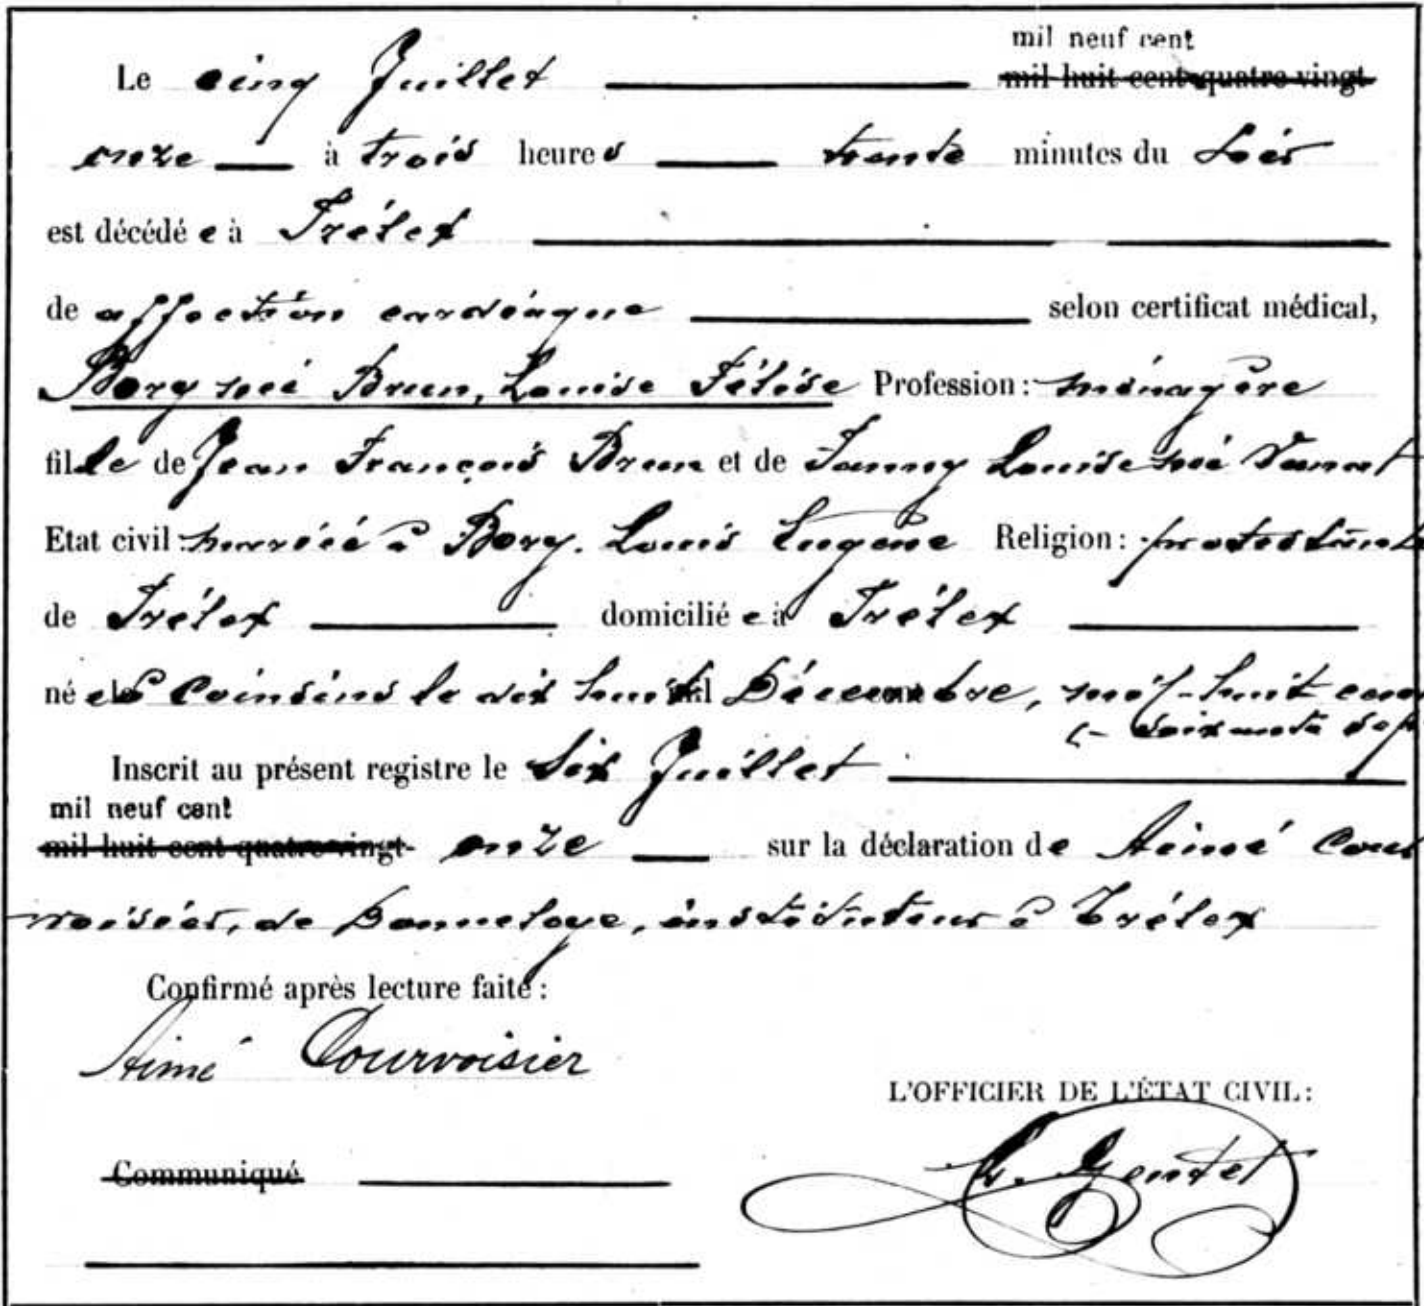 mil neuf cent
Le cinq Juillet mil huit cent quatre vingt
onze à trois heures trente minutes du soir
est décédée à Trélex
de affection cardiaque selon certificat médical,
Bory née Brun, Louise Félise Profession: ménagère
fille de Jean François Brun et de Fanny Louise née
Etat civil: mariée à Bory. Louis Eugene Religion: protestante
de Trélex domiciliée à Trélex
née à Coinsins le dix huit Décembre, mil-huit cent
soixante sept
Inscrit au présent registre le six Juillet
mil neuf cent
mil huit cent quatre vingt- onze sur la déclaration de Aimé Cour
voisier, de Donneloye, instituteur à Trélex
Confirmé après lecture faite:
Aimé Courvoisier
L'OFFICIER DE L'ÉTAT CIVIL:
Communiqué
Gendet